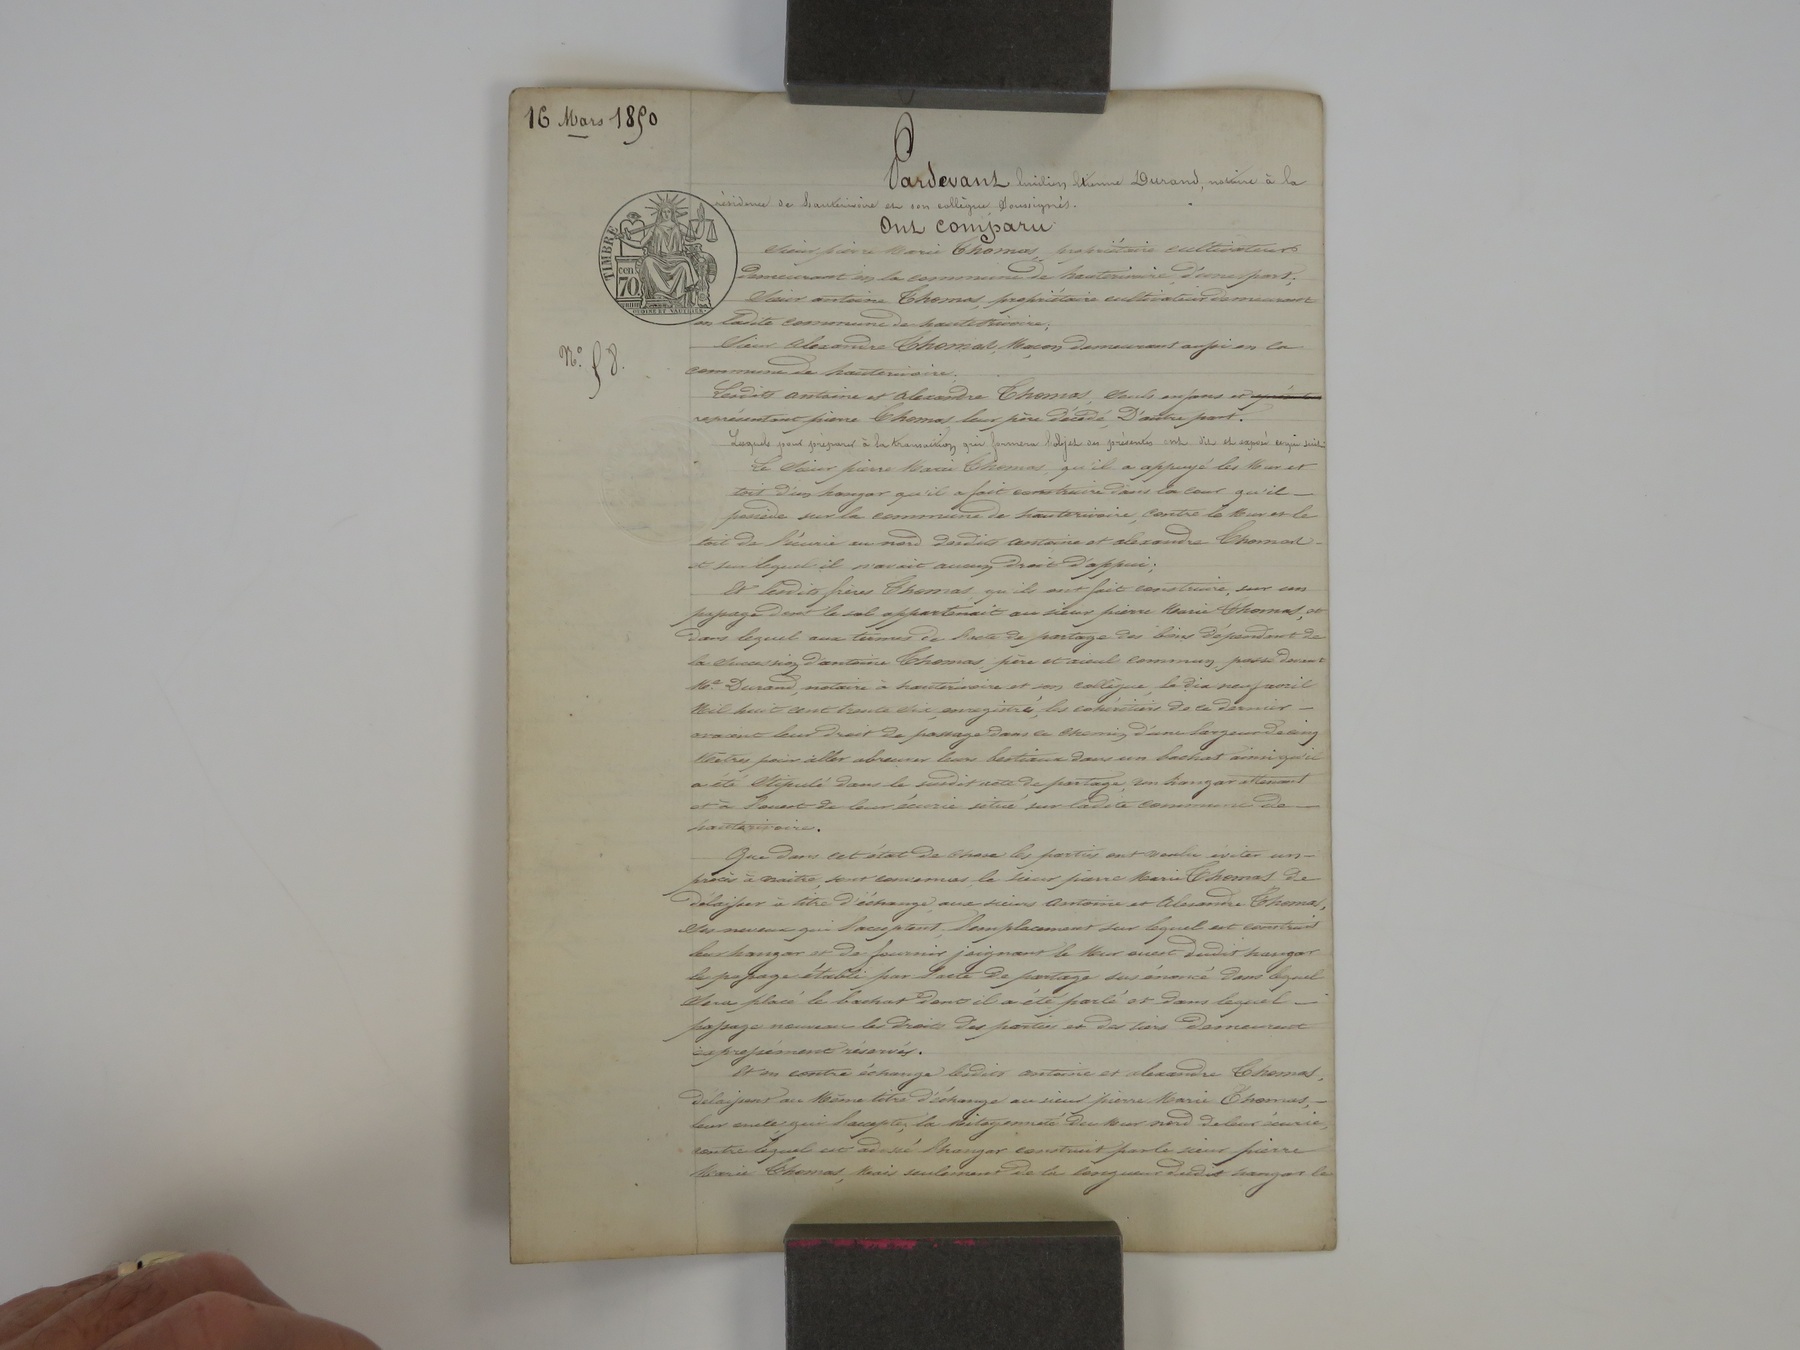 16 Mars 1850
Pardevant Etienne Durand, notaire à la
résidence de hauterivoire et son collègue soussignés.
Ont comparu
Sieur pierre Marie Thomas, propriétaire cultivateur
demeurant en la commune de hauterivoire, d'une part,
TIMBRE
cen
70
Sieur antoine Thomas, propriétaire cultivateur demeurant
en ladite commune de hauterivoire;
N.° 58.
Sieur alexandre Thomas, Maçon demeurant aussi en la
commune de hauterivoire.
Lesdits antoine et alexandre Thomas, seuls enfans et
représentant pierre Thomas leur père décédé, D'autre part.
Lesquels pour préparer à la transaction qui formera l'objet des présentes ont dit et exposé ce qui suit:
Le Sieur pierre Marie Thomas, qu'il a appuyé les Mur et
toit d'un hangar qu'il a fait construire dans la cour qu'il
possède sur la commune de hauterivoire, contre le Mur et le
toit de l'écurie au nord desdits antoine et alexandre Thomas
et sur lequel il n'avait aucun droit d'appui;
Et lesdits frères Thomas, qu'ils ont fait construire, sur un
passage dont le sol appartenait au sieur pierre Marie Thomas, et
dans lequel aux termes de l'acte de partage des biens dépendant de
la succession d'antoine Thomas père et aieul commun, passé devant
Me Durand, notaire à hauterivoire et son collègue, le dix neuf avril
Mil huit cent trente six, enregistré, les cohéritiers de ce dernier
avaient leur droit de passage dans ce chemin d'une largeur de cinq
Mètres pour aller abreuver leurs bestiaux dans un bachat ainsi qu'il
a été stipulé dans le susdit acte de partage, un hangar attenant
et à l'ouest de leur écurie situé sur ladite commune de
hauterivoire.
Que dans cet état de chose les parties ont voulu éviter un
procès à naitre, sont convenues, le sieur pierre Marie Thomas de
délaisser à titre d'échange aux sieurs Antoine et Alexandre Thomas,
ses neveux qui l'acceptent, l'emplacement sur lequel est construit
leur hangar et de fournir joignant le Mur ouest dudit hangar
le passage établi par l'acte de partage sus énoncé dans lequel
sera placé le bachat dont il a été parlé et dans lequel
passage nouveau les droits des parties et des tiers demeurent
expressément réservés.
Et en contre échange lesdits antoine et alexandre Thomas,
délaissent au Même titre d'échange au sieur pierre Marie Thomas,
leur oncle, qui l'accepte, la Mitoyenneté du Mur nord de leur écurie,
contre lequel est adossé l'hangar construit par le sieur pierre
Marie Thomas, Mais seulement de la longueur dudit hangar le